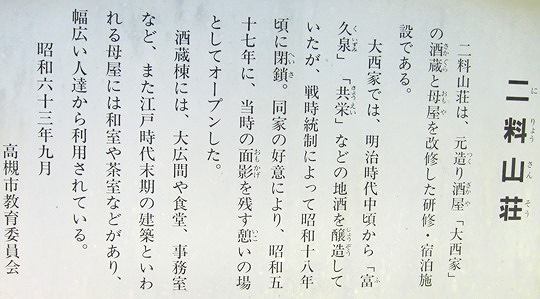 二料山荘
二料山荘は、元造り酒屋「大西家」
の酒蔵と母屋を改修した研修・宿泊施
設である。
大西家では、明治時代中頃から「富
久泉」「共栄」などの地酒を醸造して
いたが、戦時統制によって昭和十八年
頃に閉鎖。同家の好意により、昭和五
十七年に、当時の面影を残す憩いの場
としてオープンした。
酒蔵棟には、大広間や食堂、事務室
など、また江戸時代末期の建築といわ
れる母屋には和室や茶室などがあり、
幅広い人達から利用されている。
昭和六十三年九月
高槻市教育委員会